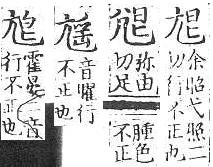 余昭弋照二
切行不正也
弥由
切足
腫色
不正
音曜行
不正也
霍晏二音
行不正也